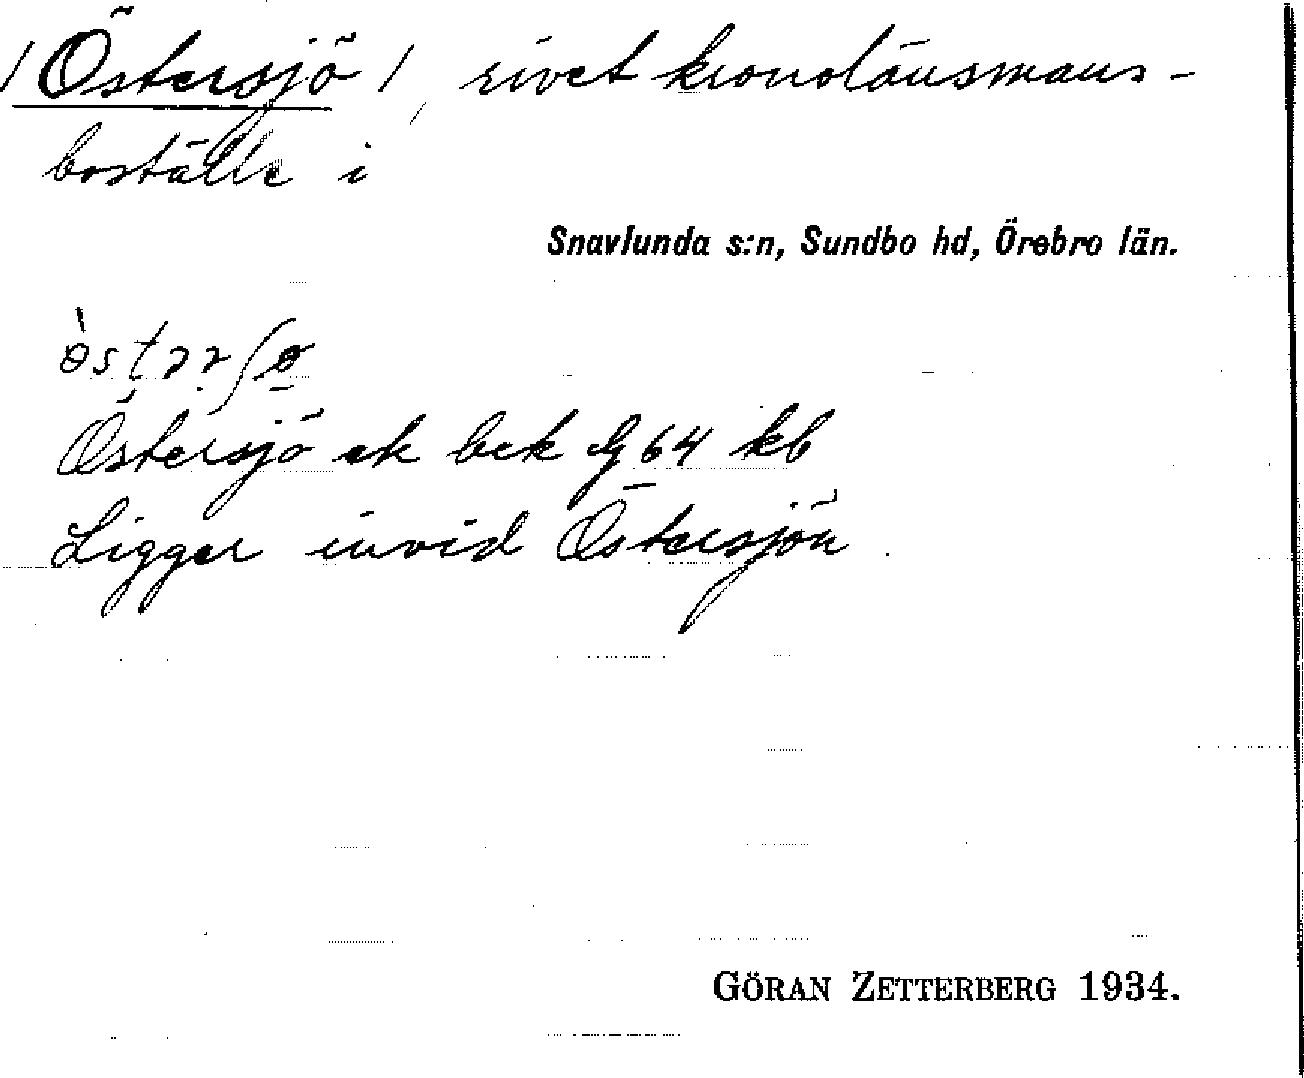 /Östersjö/, rivet kronolänsmans-
boställe i
Snavlunda s:n, Sundbo hd, Örebro län.
Östersjö ek bck Lg 64 kb
Ligger invid Östersjön.
GÖRAN ZETTERBERG 1934.